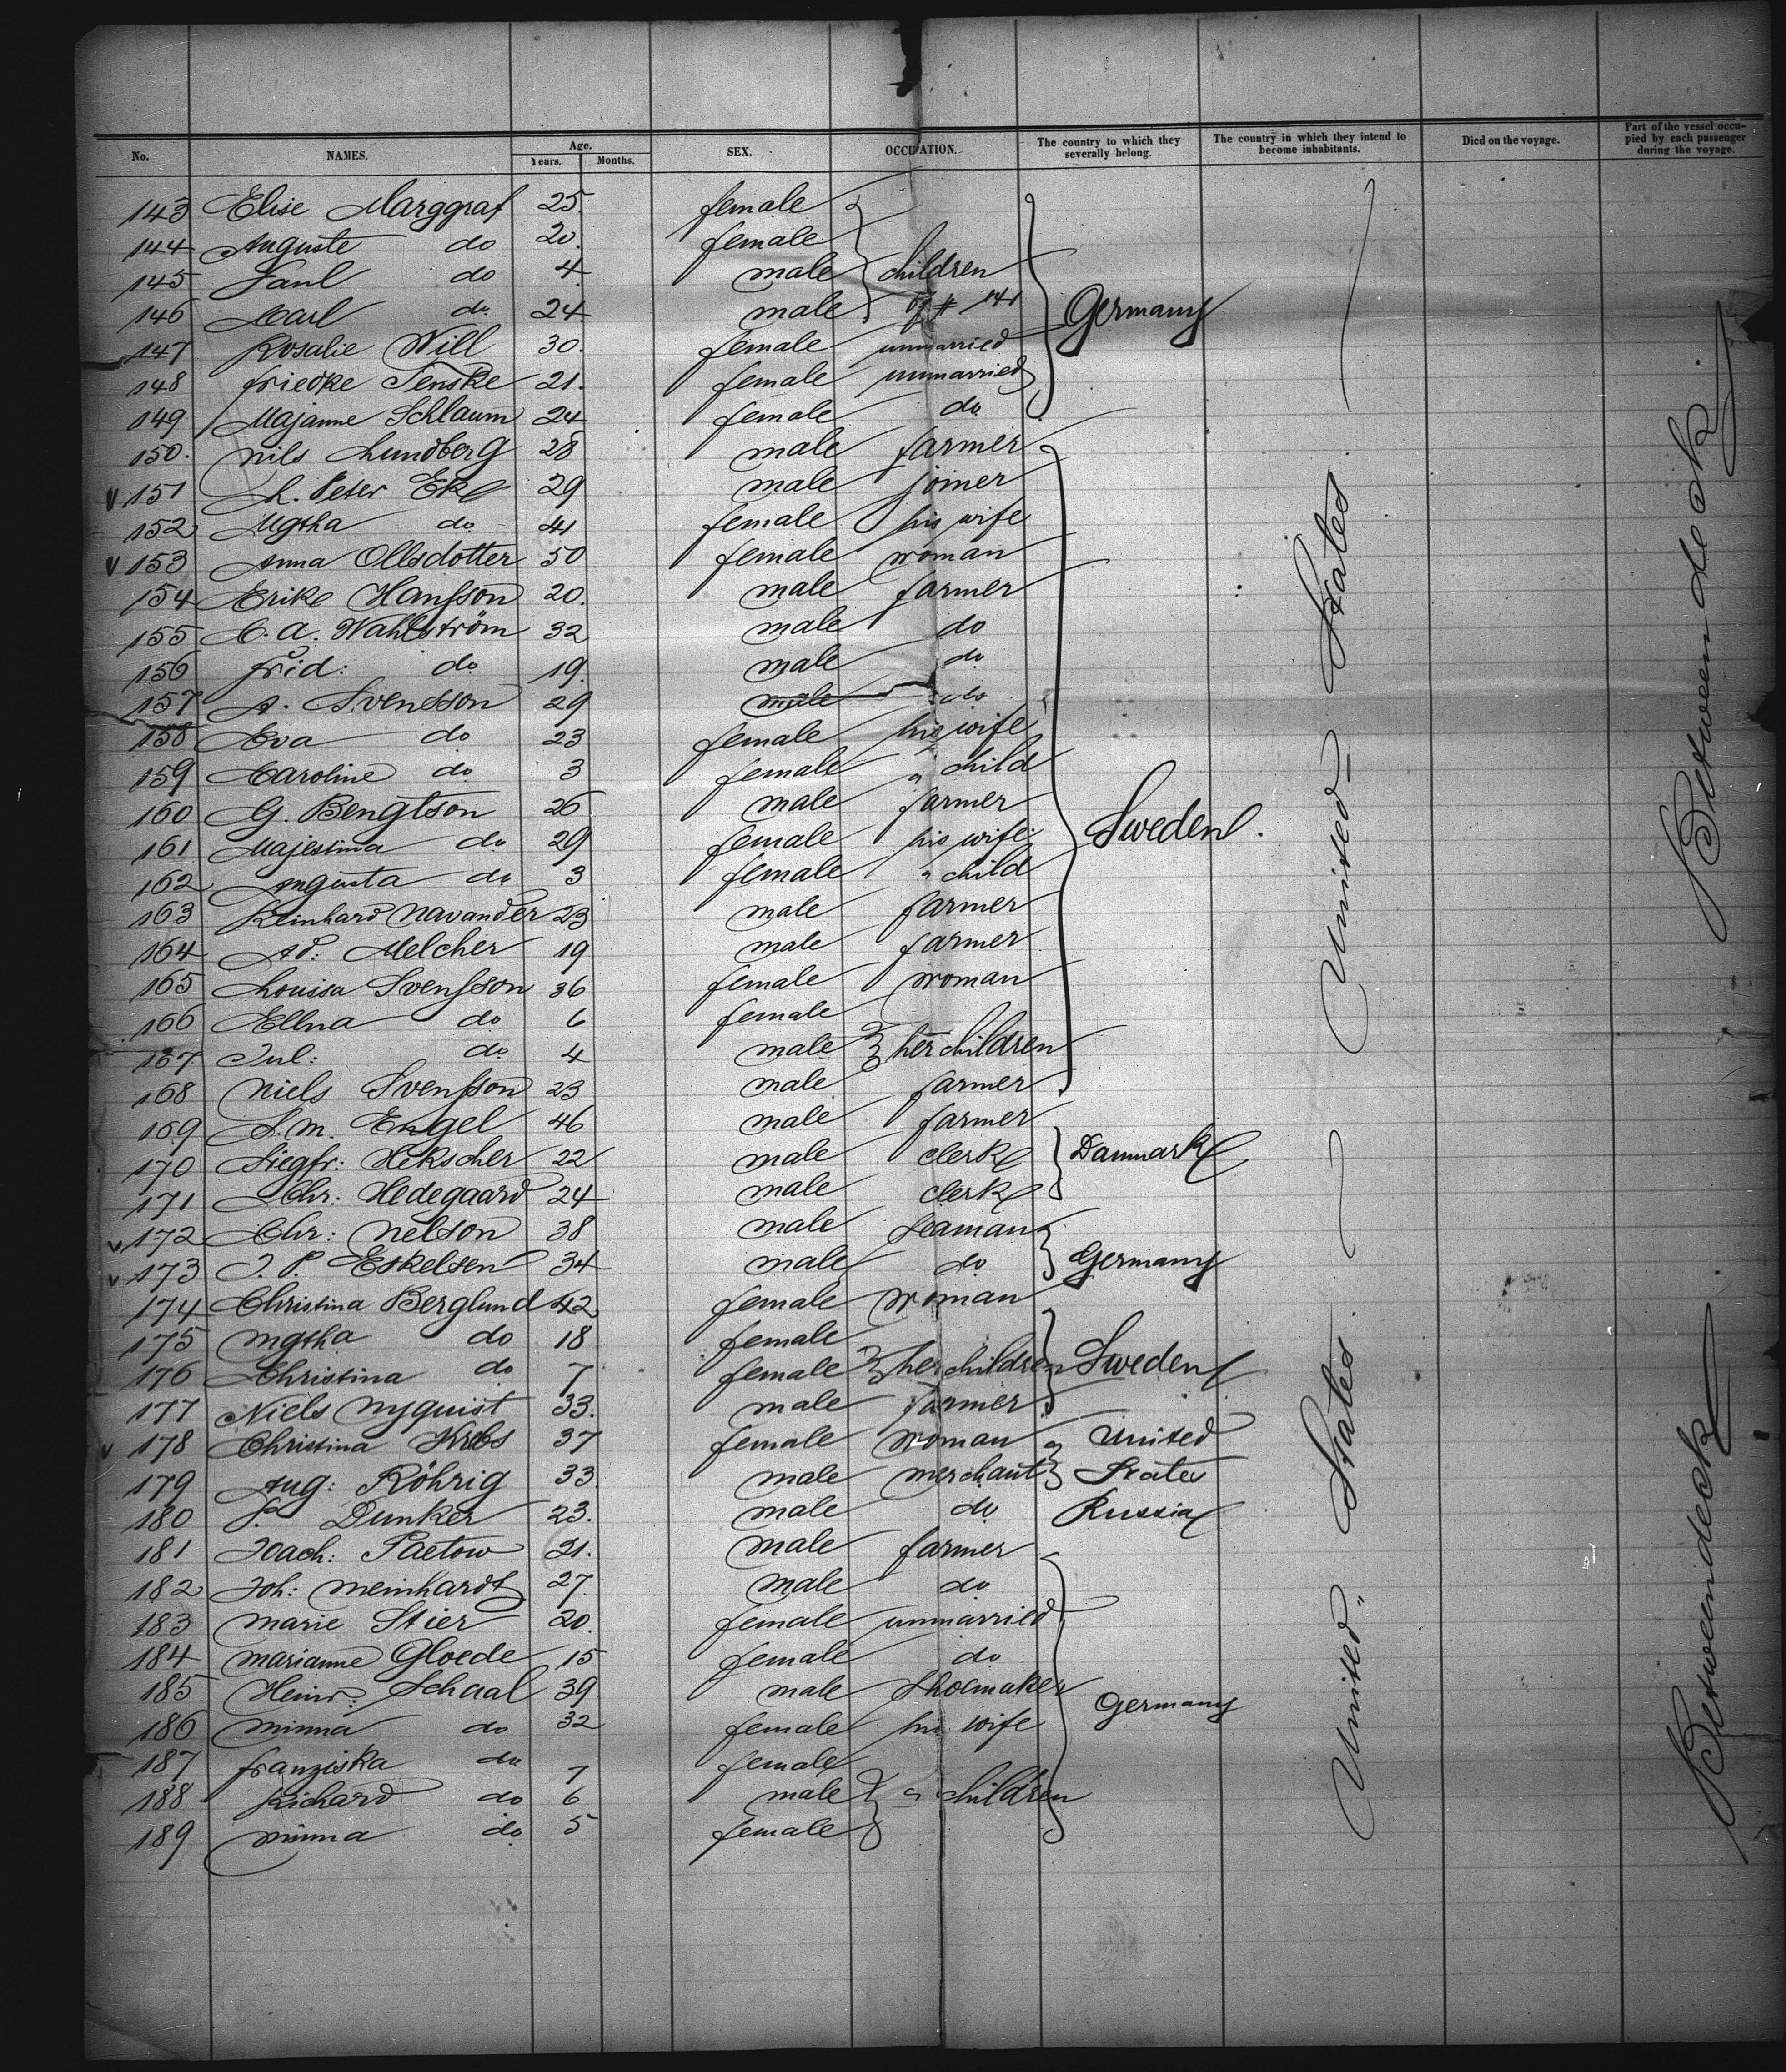 No. NAMES. Age. Years. Months. SEX. OCCUPATION. The country to which they severally belong. The country in which they intend to become inhabitants. Died on the voyage. Part of the vessel occupied by each passenger during the voyage.
143 Elise Marggraf 25. female
144 Auguste do 20. female
145 Paul do 4 male children
146 Carl do 24 male of # 141 Germany
147 Rosalie Will 30. female unmarried
148 Friedke Senske 21. female unmarried
149 Majanne Schlaum 24 female do
150. Nils Lundberg 28 male farmer
V 151 L. Peter Eke 29 male joiner
152 Mgtha do 41 female his wife
V 153 Anna Ollsdotter 50 female woman
154 Erike Hansson 20. male farmer
155 C. A. Wahlström 32 male do
156 Frid: do 19. male do
157 A. Svendson 29 male do
158 Eva do 23 female his wife
159 Caroline do 3 female " child
160 G. Bengtson 26 male farmer
161 Majestina do 29 female his wife Sweden.
162 Augusta do 3 female " child
163 Reinhard Navander 23 male farmer
164 Ad: Melcher 19 male farmer
165 Louisa Svensson 36 female woman
166 Ellna do 6 female
167 Jul: do 4 male her children
168 Niels Svensson 23 male farmer
169 S. M. Engel 46 male farmer
170 Siegfr: Hekscher 22 male clerk Danmark
171 Chr: Hedegaard 24 male clerk
V 172 Chr: Nelson 38 male seaman
V 173 J. P. Eskelsen 34 male do Germany
174 Christina Berglund 42 female woman
175 Mgtha do 18 female
176 Christina do 7 female her children Sweden
177 Niels Nyquist 33. male farmer
V 178 Christina Krebs 37 female woman United
179 Aug: Röhrig 33 male merchant States
180 P. Dunker 23. male do Russia
181 Joach: Paetow 21. male farmer
182 Joh: Meinhardt 27 male do
183 Marie Stier 20. female unmarried
184 Marianne Gloede 15 female do
185 Heinr: Schaal 39 male shoemaker Germany
186 Minna do 32 female his wife
187 Franziska do 7 female
188 Richard do 6 male " children
189 Minna do 5 female
United States
United States
Betweendeck
Betweendeck